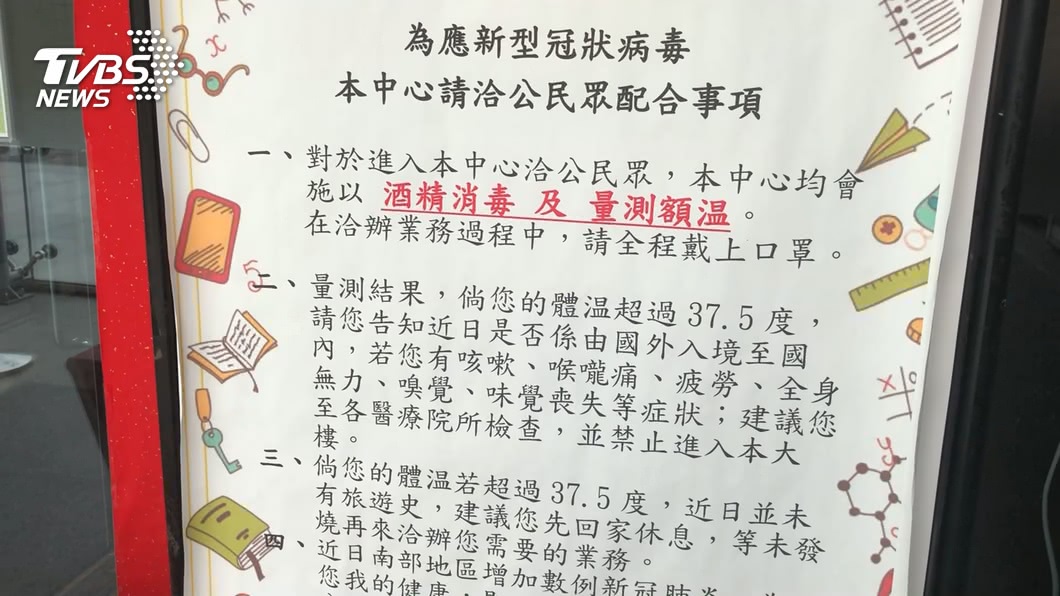 TVBS
NEWS
為應新型冠狀病毒
本中心請洽公民眾配合事項
一、對於進入本中心洽公民眾，本中心均會
施以 酒精消毒 及 量測額溫。
在洽辦業務過程中，請全程戴上口罩。
二、量測結果，倘您的體溫超過37.5度，
請您告知近日是否係由國外入境至國
內，若您有咳嗽、喉嚨痛、疲勞、全身
無力、嗅覺、味覺喪失等症狀；建議您
至各醫療院所檢查，並禁止進入本大
樓。
三、倘您的體溫若超過37.5度，近日並未
有旅遊史，建議您先回家休息，等未發
燒再來洽辦您需要的業務。
四、近日南部地區增加數例新冠肺炎
您我的健康，